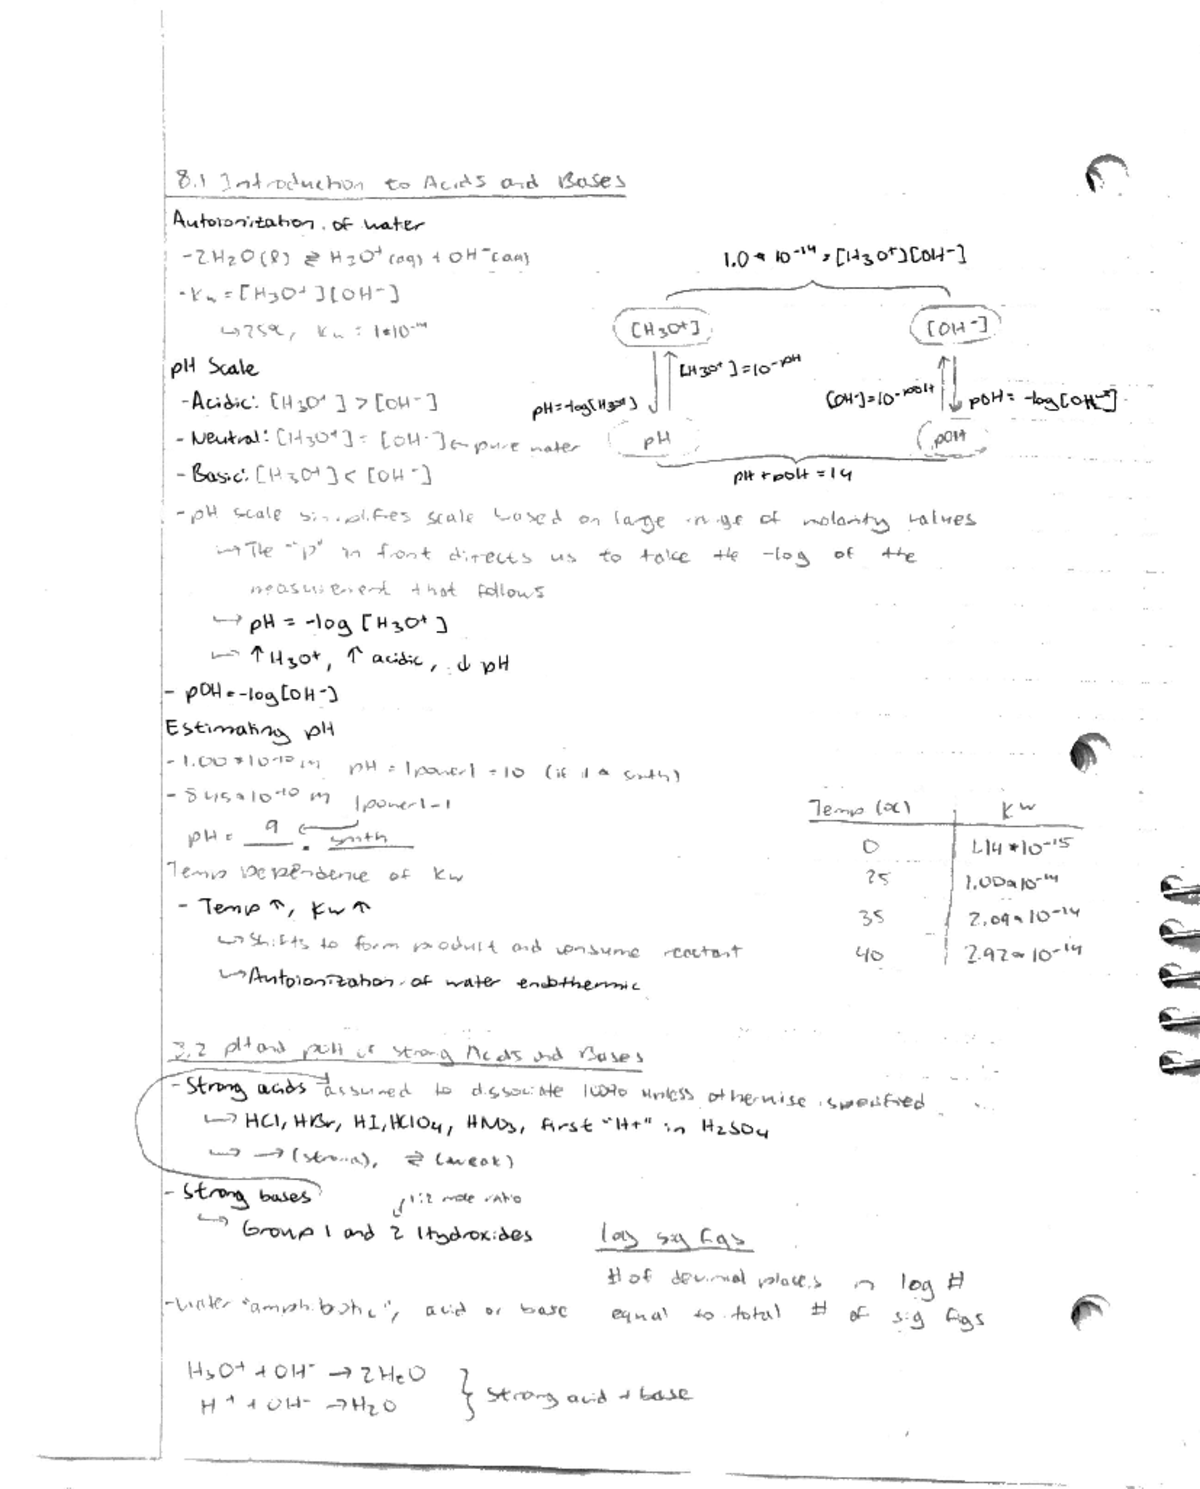 8.1 Introduction to Acids and Bases
Autoionization of water
- 2H2O(l) ⇌ H3O+(aq) + OH-(aq)
- Kw = [H3O+][OH-]
↳ 25°C, Kw = 1*10^-14
1.0 * 10^-14 = [H3O+][OH-]
[H3O+] [OH-]
[H3O+] = 10^-pH
pH = -log[H3O+]
[OH-] = 10^-pOH
pOH = -log[OH-]
pH pOH
pH + pOH = 14
pH Scale
- Acidic: [H3O+] > [OH-]
- Neutral: [H3O+] = [OH-] ← pure water
- Basic: [H3O+] < [OH-]
- pH scale simplifies scale based on large range of molarity values
↳ The "p" in front directs us to take the -log of the
measurement that follows
↳ pH = -log [H3O+]
↳ ↑ H3O+, ↑ acidic, ↓ pH
- pOH = -log[OH-]
Estimating pH
- 1.00 * 10^-10 M pH = |power| = 10 (if 1 * smth)
- 8.45 * 10^-10 M |power|-1
pH = 9 . smth
Temp Dependence of Kw
- Temp ↑, Kw ↑
↳ Shifts to form product and consume reactant
↳ Autoionization of water endothermic
Temp (°C) Kw
0 1.14 * 10^-15
25 1.00 * 10^-14
35 2.09 * 10^-14
40 2.92 * 10^-14
8.2 pH and pOH of Strong Acids and Bases
- Strong acids assumed to dissociate 100% unless otherwise specified
↳ HCl, HBr, HI, HClO4, HNO3, first "H+" in H2SO4
↳ → (strong), ⇌ (weak)
- Strong bases
1:2 mole ratio
↳ Group 1 and 2 Hydroxides
log sig figs
# of decimal places in log #
equal to total # of sig figs
- Water "amphibotic", acid or base
H3O+ + OH- → 2H2O
H+ + OH- → H2O
} strong acid + base